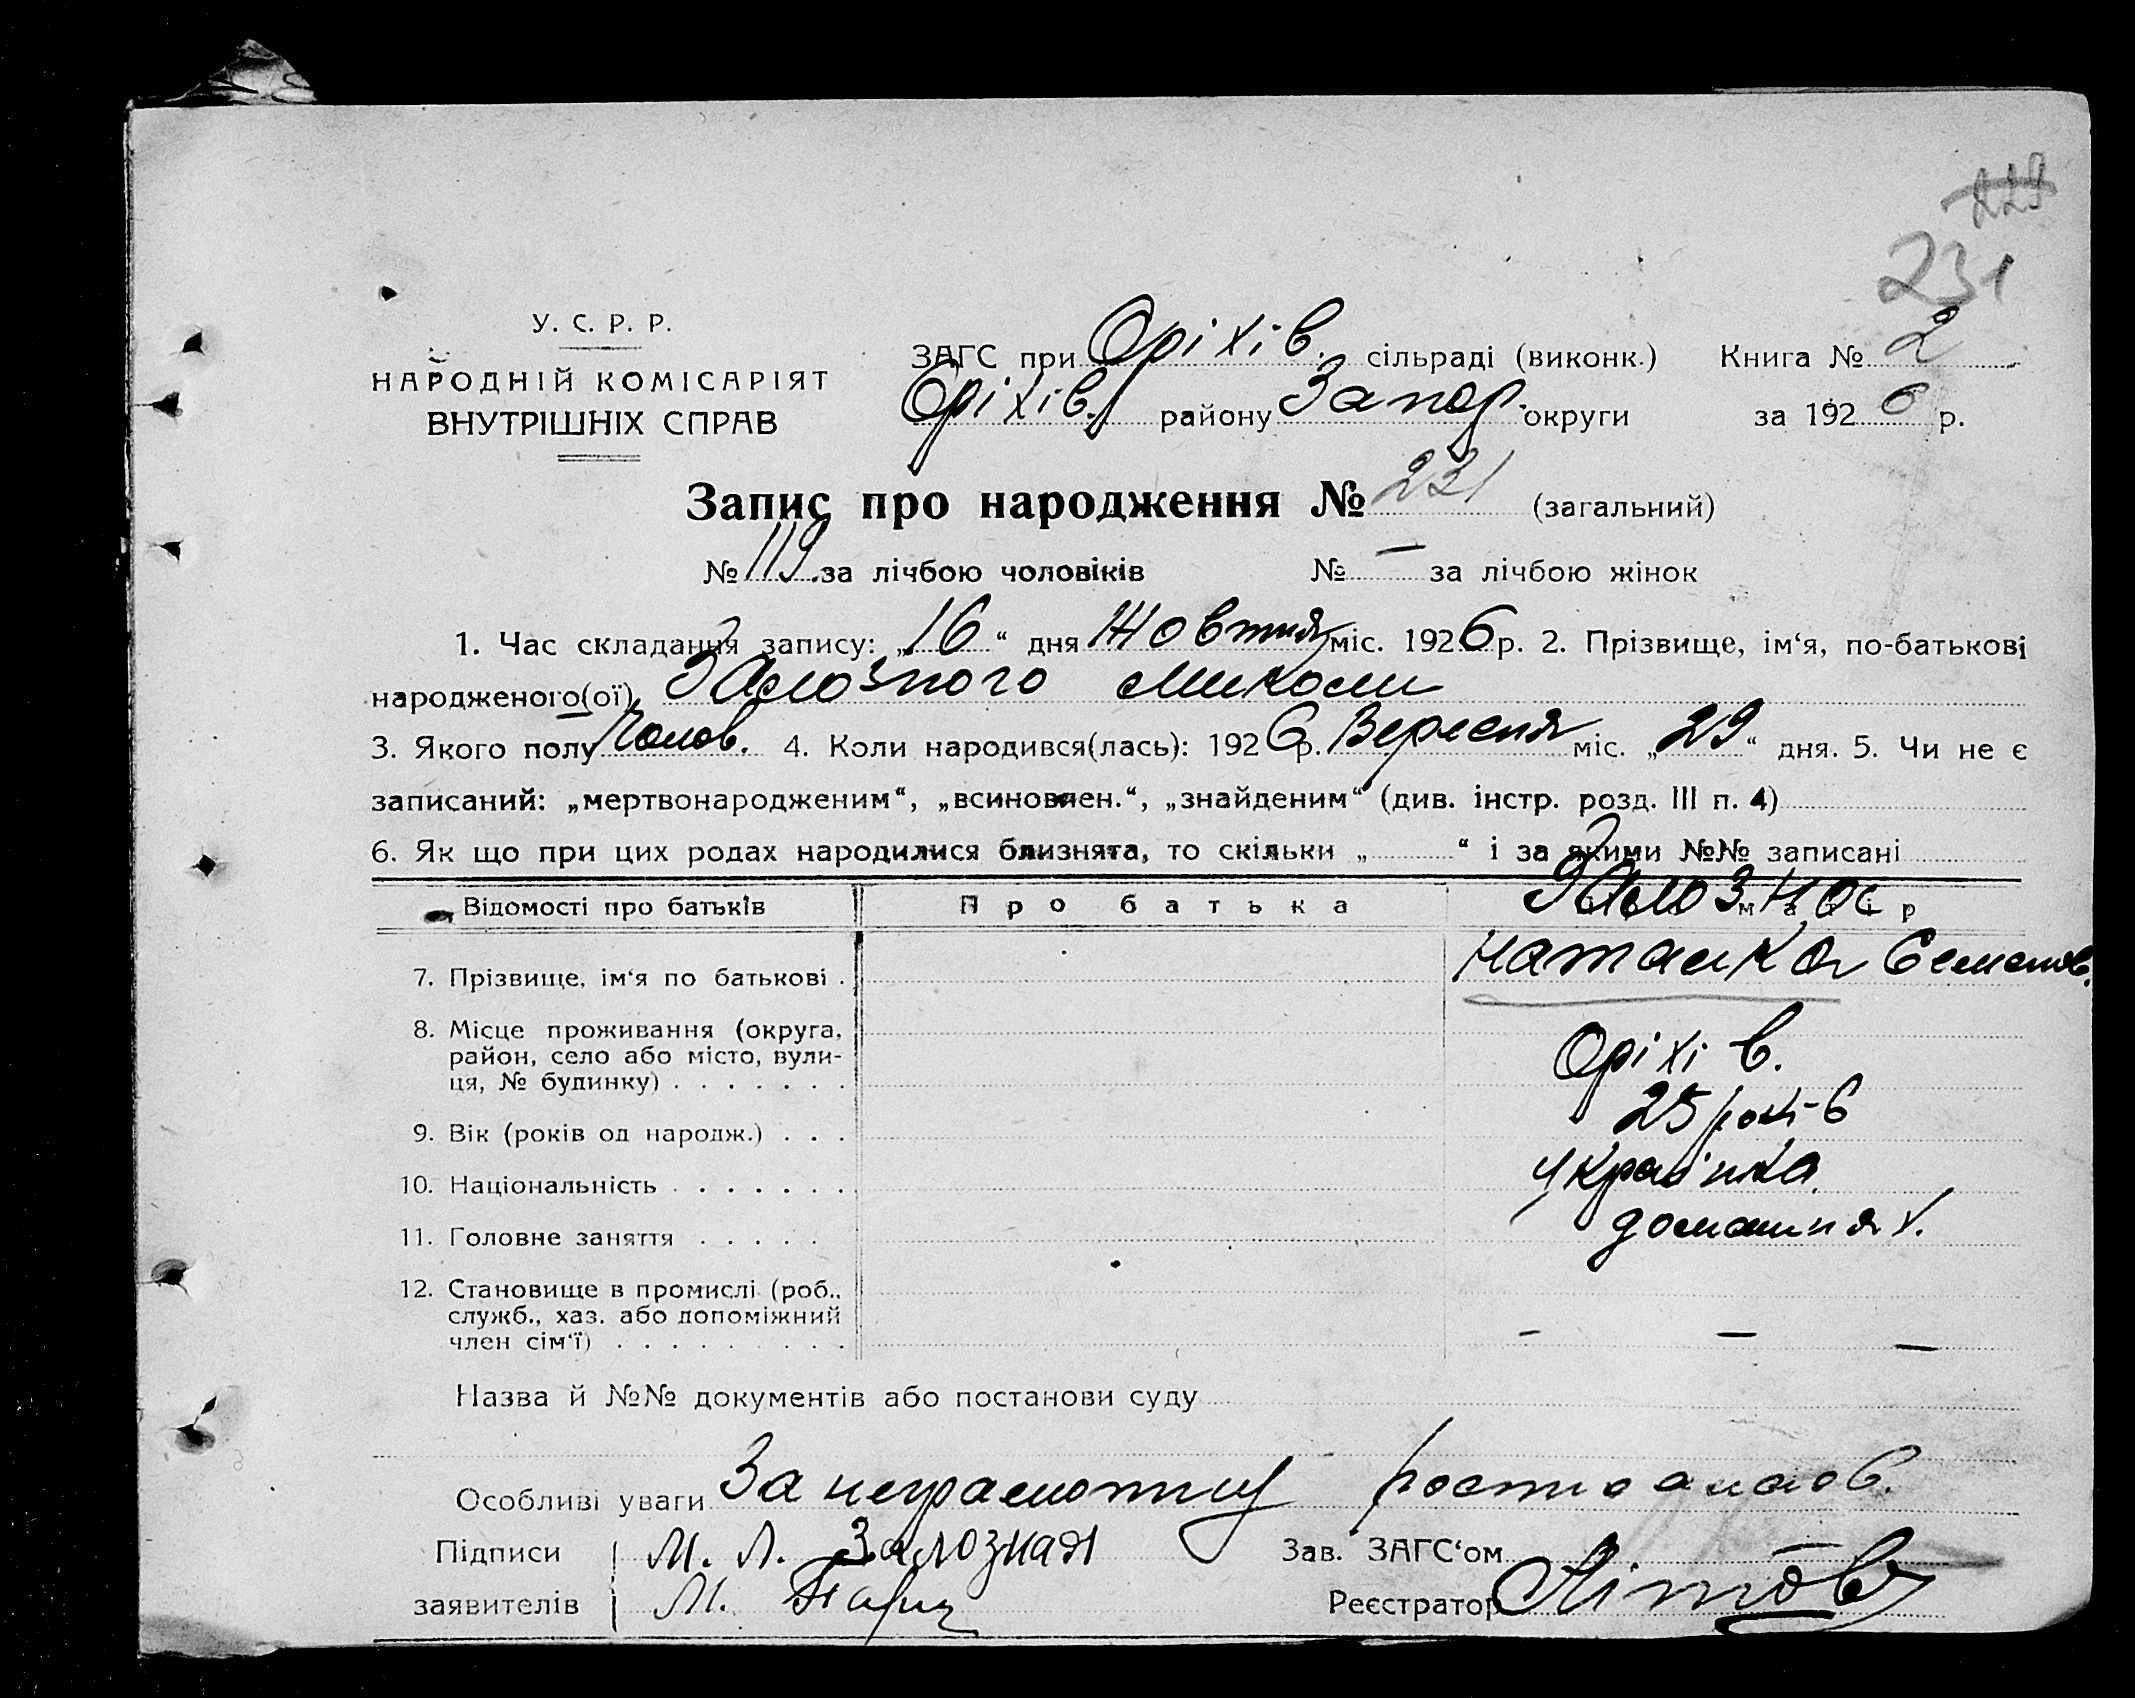 231
У. С. Р. Р.
НАРОДНІЙ КОМІСАРІЯТ
ВНУТРІШНІХ СПРАВ
ЗАГС при Оріхів. сільраді (виконк.) Книга № 2
Оріхів. району Запор. округи за 1926 р.
Запис про народження № 231 (загальний)
№ 119 за лічбою чоловіків № — за лічбою жінок
1. Час складання запису: „16“ дня Жовтня міс. 1926 р. 2. Прізвище, ім‘я, по-батькові
народженого(ої) Залозного Миколи
3. Якого полу Чолов. 4. Коли народився(лась): 1926 р. Вересня міс. „29“ дня. 5. Чи не є
записаний: „мертвонародженим“, „всиновлен.“, „знайденим“ (див. інстр. розд. III п. 4)
6. Як що при цих родах народилися близнята, то скільки „ “ і за якими №№ записані
Відомості про батьків Про батька матір
Залозна
7. Прізвище, ім‘я по батькові . Наталка Семенов.
8. Місце проживання (округа,
район, село або місто, вули-
ця, № будинку) . . . . . . . Оріхів.
9. Вік (років од народж.) . . . 25 років
10. Національність . . . . . . . Українка
11. Головне заняття . . . . . домашня х.
12. Становище в промислі (роб.,
служб., хаз. або допоміжний
член сім‘ї) . . . . . . . . . — — —
Назва й №№ документів або постанови суду
Особливі уваги За неграмотну
Підписи М. Л. Залозная Зав. ЗАГС‘ом
заявителів М. Реєстратор Літов